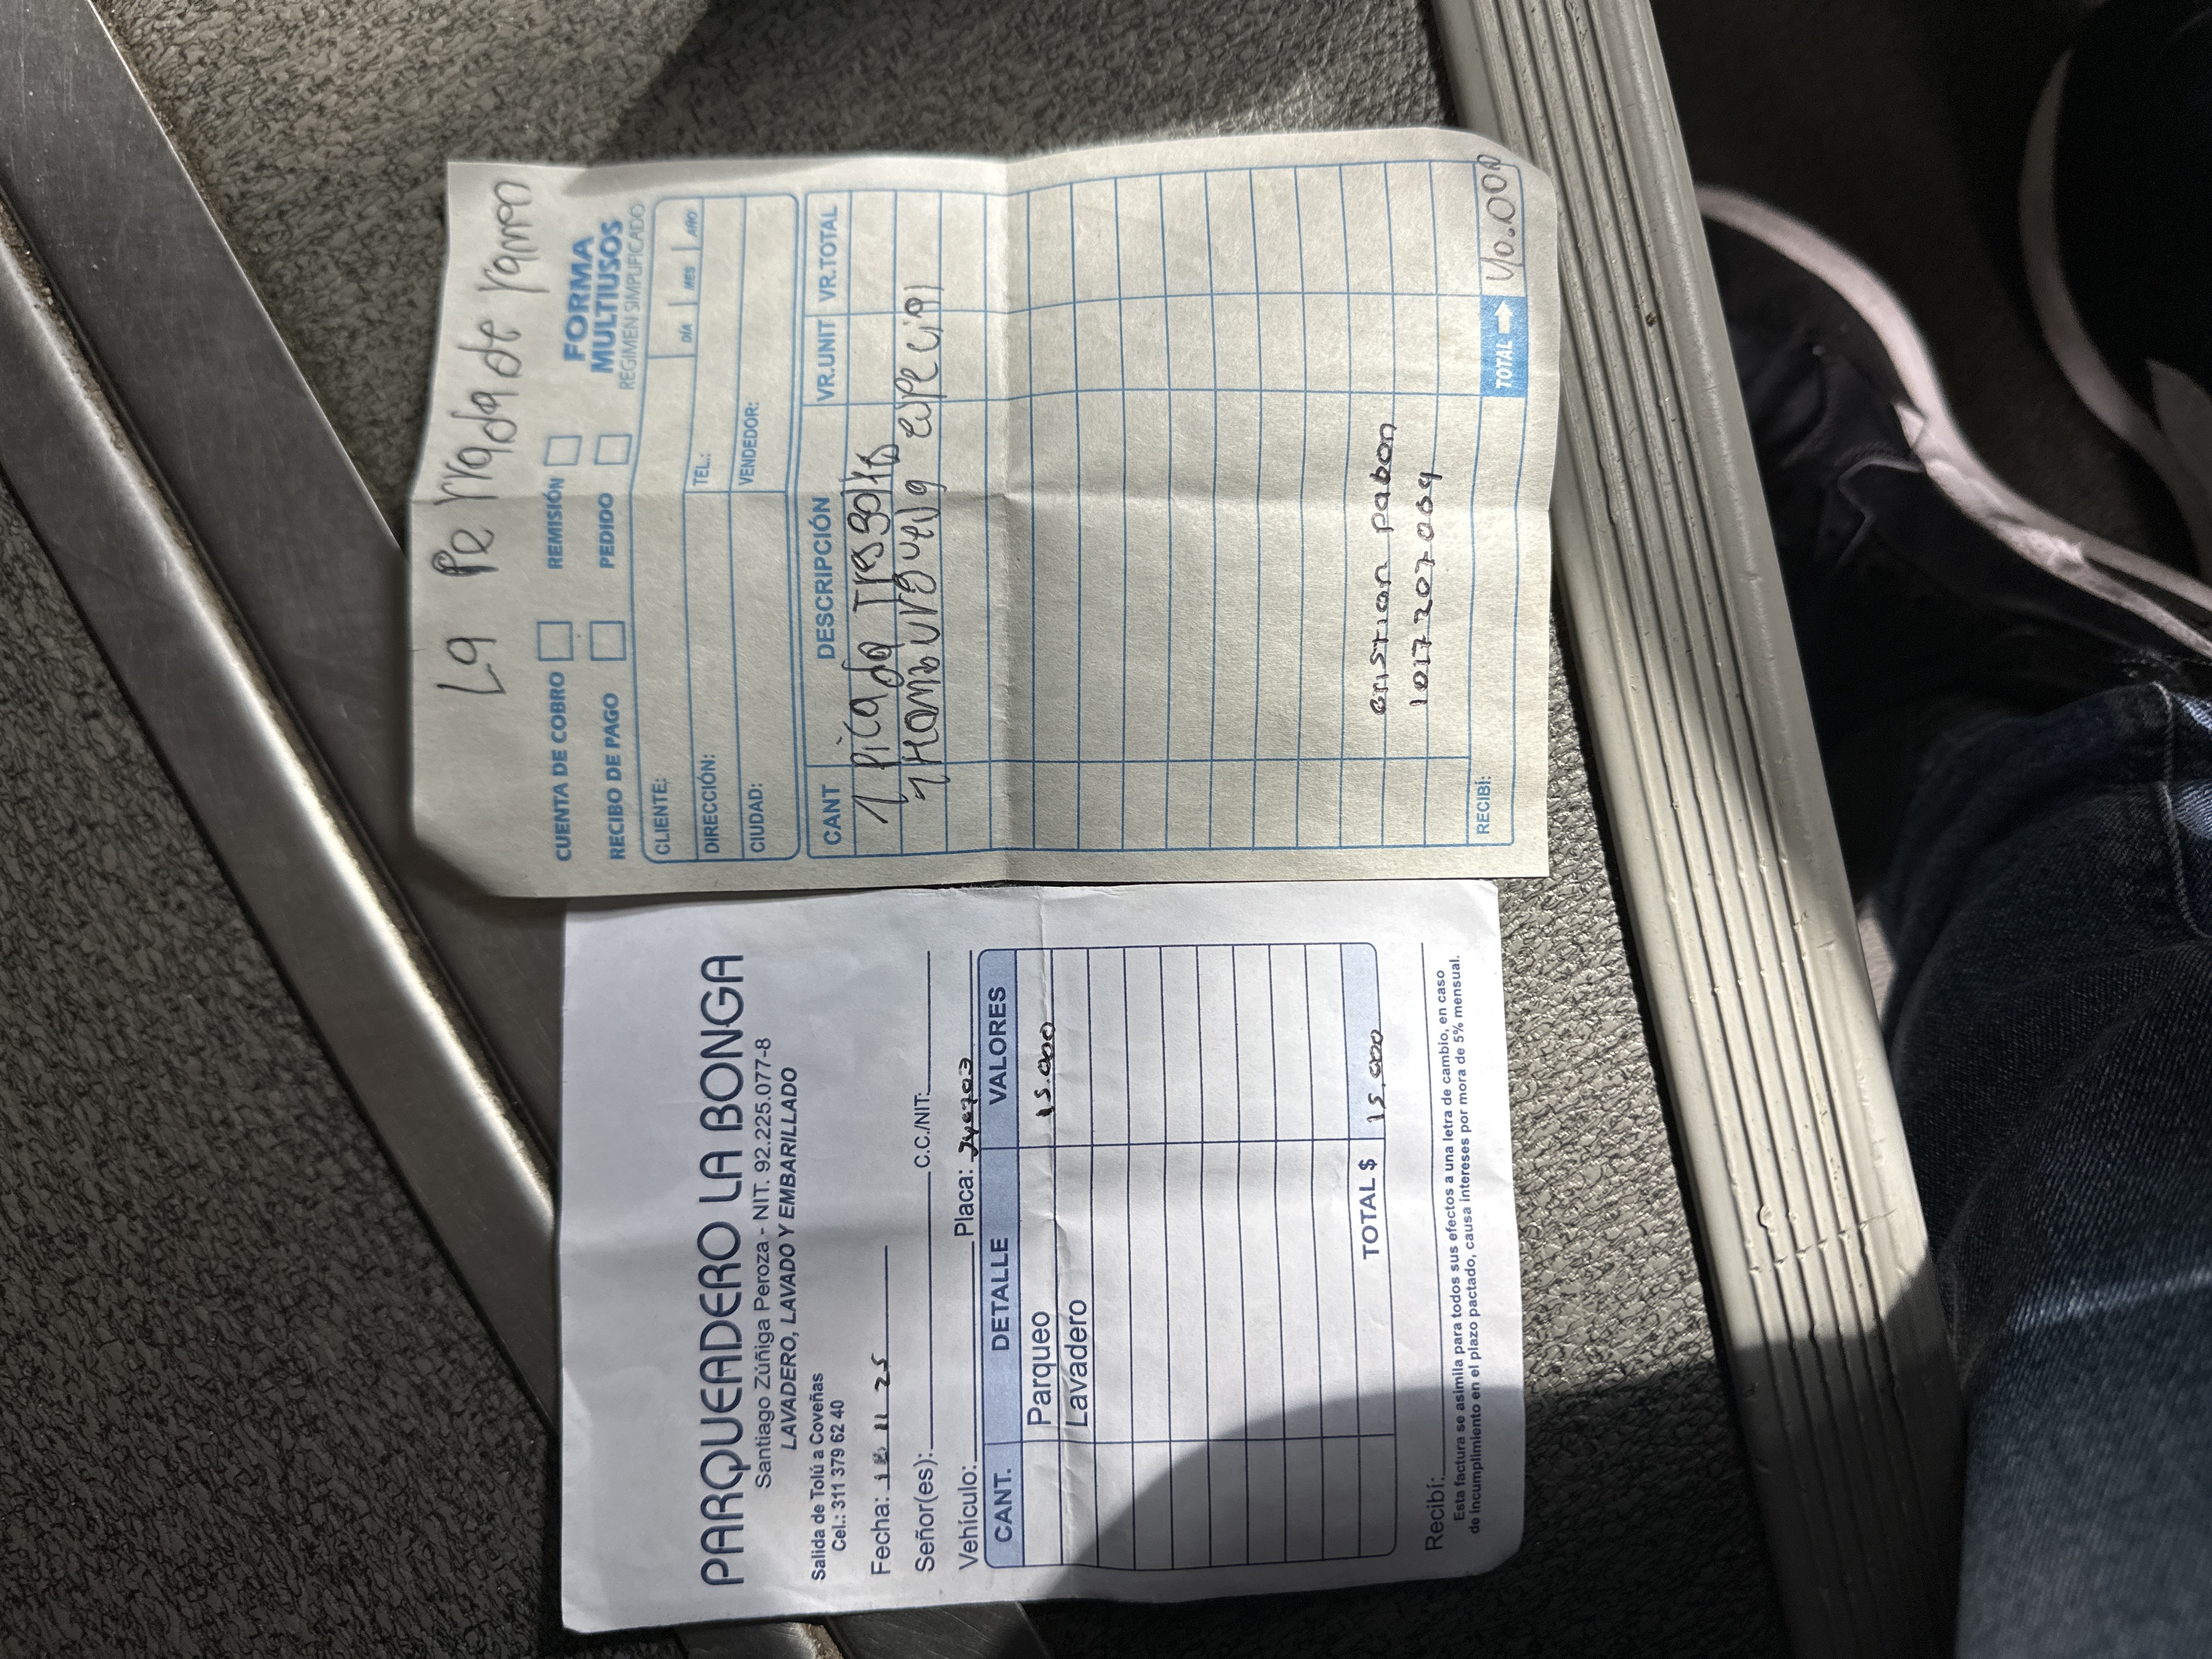 PARQUEADERO LA BONGA
Santiago Zúñiga Peroza - NIT. 92.225.077-8
LAVADERO, LAVADO Y EMBARILLADO
Salida de Tolú a Coveñas
Cel.: 311 379 62 40
Fecha: 11 25
Señor(es): C.C./NIT:
Vehículo: Placa:
CANT. DETALLE VALORES
Parqueo 15.000
Lavadero
TOTAL $ 15.000
Recibí:
Esta factura se asimila para todos sus efectos a una letra de cambio, en caso
de incumplimiento en el plazo pactado, causa intereses por mora de 5% mensual.
La Perrada de ramon
CUENTA DE COBRO REMISIÓN FORMA
RECIBO DE PAGO PEDIDO MULTIUSOS
REGIMEN SIMPLIFICADO
CLIENTE: DÍA MES AÑO
DIRECCIÓN: TEL.:
CIUDAD: VENDEDOR:
CANT DESCRIPCIÓN VR.UNIT VR.TOTAL
1 Picada
1 especial
cristian pabon
1017207069
RECIBÍ: TOTAL 40.000